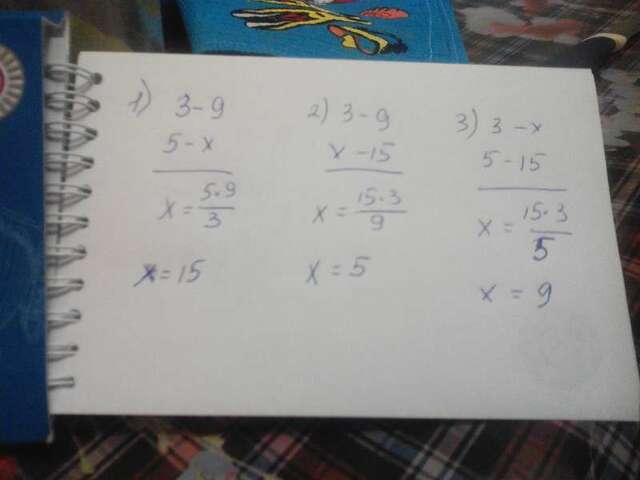 1) 3-9
5-x
x = 5·9/3
x = 15
2) 3-9
x-15
x = 15·3/9
x = 5
3) 3-x
5-15
x = 15·3/5
x = 9